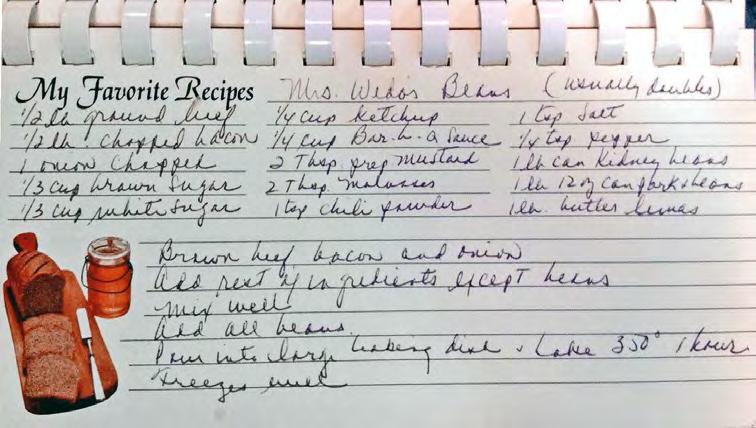 My Favorite Recipes Mrs. Wedo's Beans (usually doubles)
1/2 lb ground beef 1/4 cup Ketchup 1 tsp Salt
1/2 lb. chopped bacon 1/4 cup Bar-b-Q Sauce 1/4 tsp pepper
1 onion Chopped 2 Tbsp. prep Mustard 1 lb can Kidney beans
1/3 cup brown Sugar 2 Tbsp. Molasses 1 lb 12 oz can pork & beans
1/3 cup white Sugar 1 tsp chili powder 1 lb. butter limas
Brown beef bacon and onion
Add rest of ingredients except beans
Mix well
Add all beans.
Pour into large baking dish & bake 350° 1 hour
Freezes well